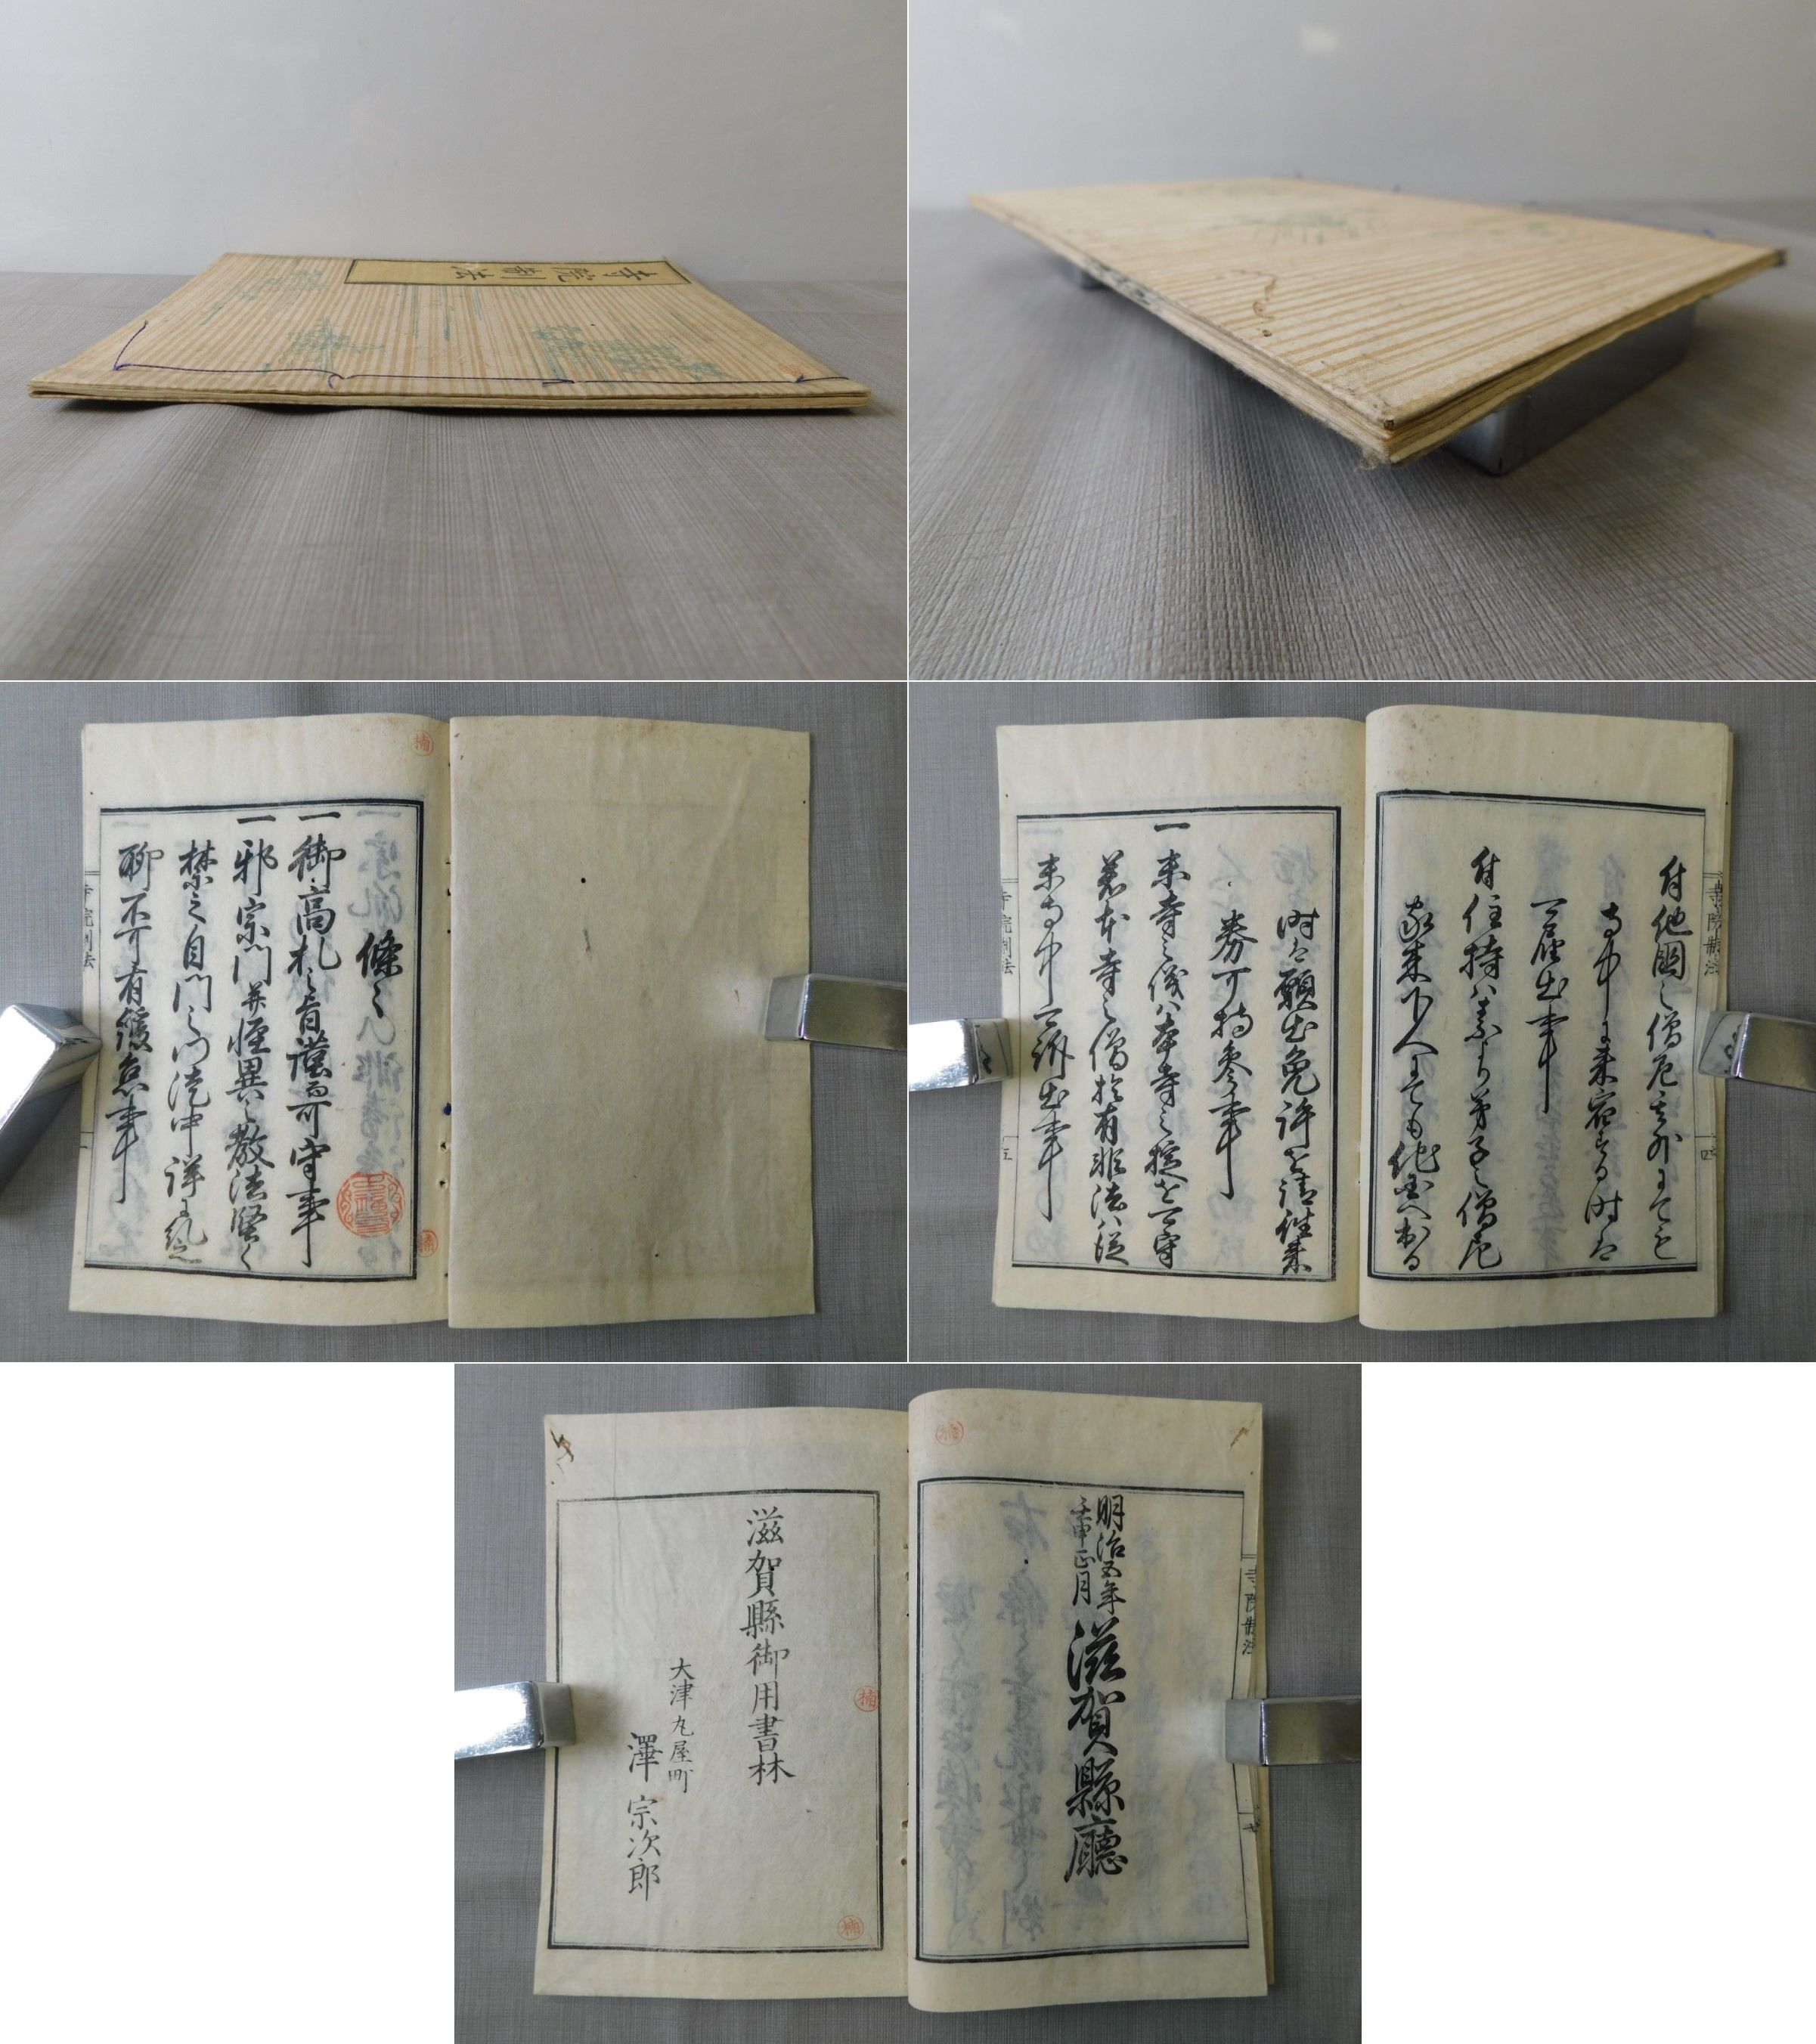 寺院制法
條々
一御高札之旨謹而可守事
一邪宗門并怪異之教法堅く
禁之自門之門徒中詳ニ糺之
聊不可有緩怠事
寺院制法
付他國之僧尼其外ニても
寺中ニ来宿する時は
可届出事
付住持ハ素より弟子之僧尼
家来下人ニても他出
寺院制法
四
時は願出免許を請往来
券可持参事
一末寺之儀ハ本寺之掟を可守
若本寺之僧於有非法ハ従
末寺中可訴出事
寺院制法
五
明治五年
壬申正月
滋賀縣廳
寺院制法
滋賀縣御用書林
大津丸屋町
澤宗次郎